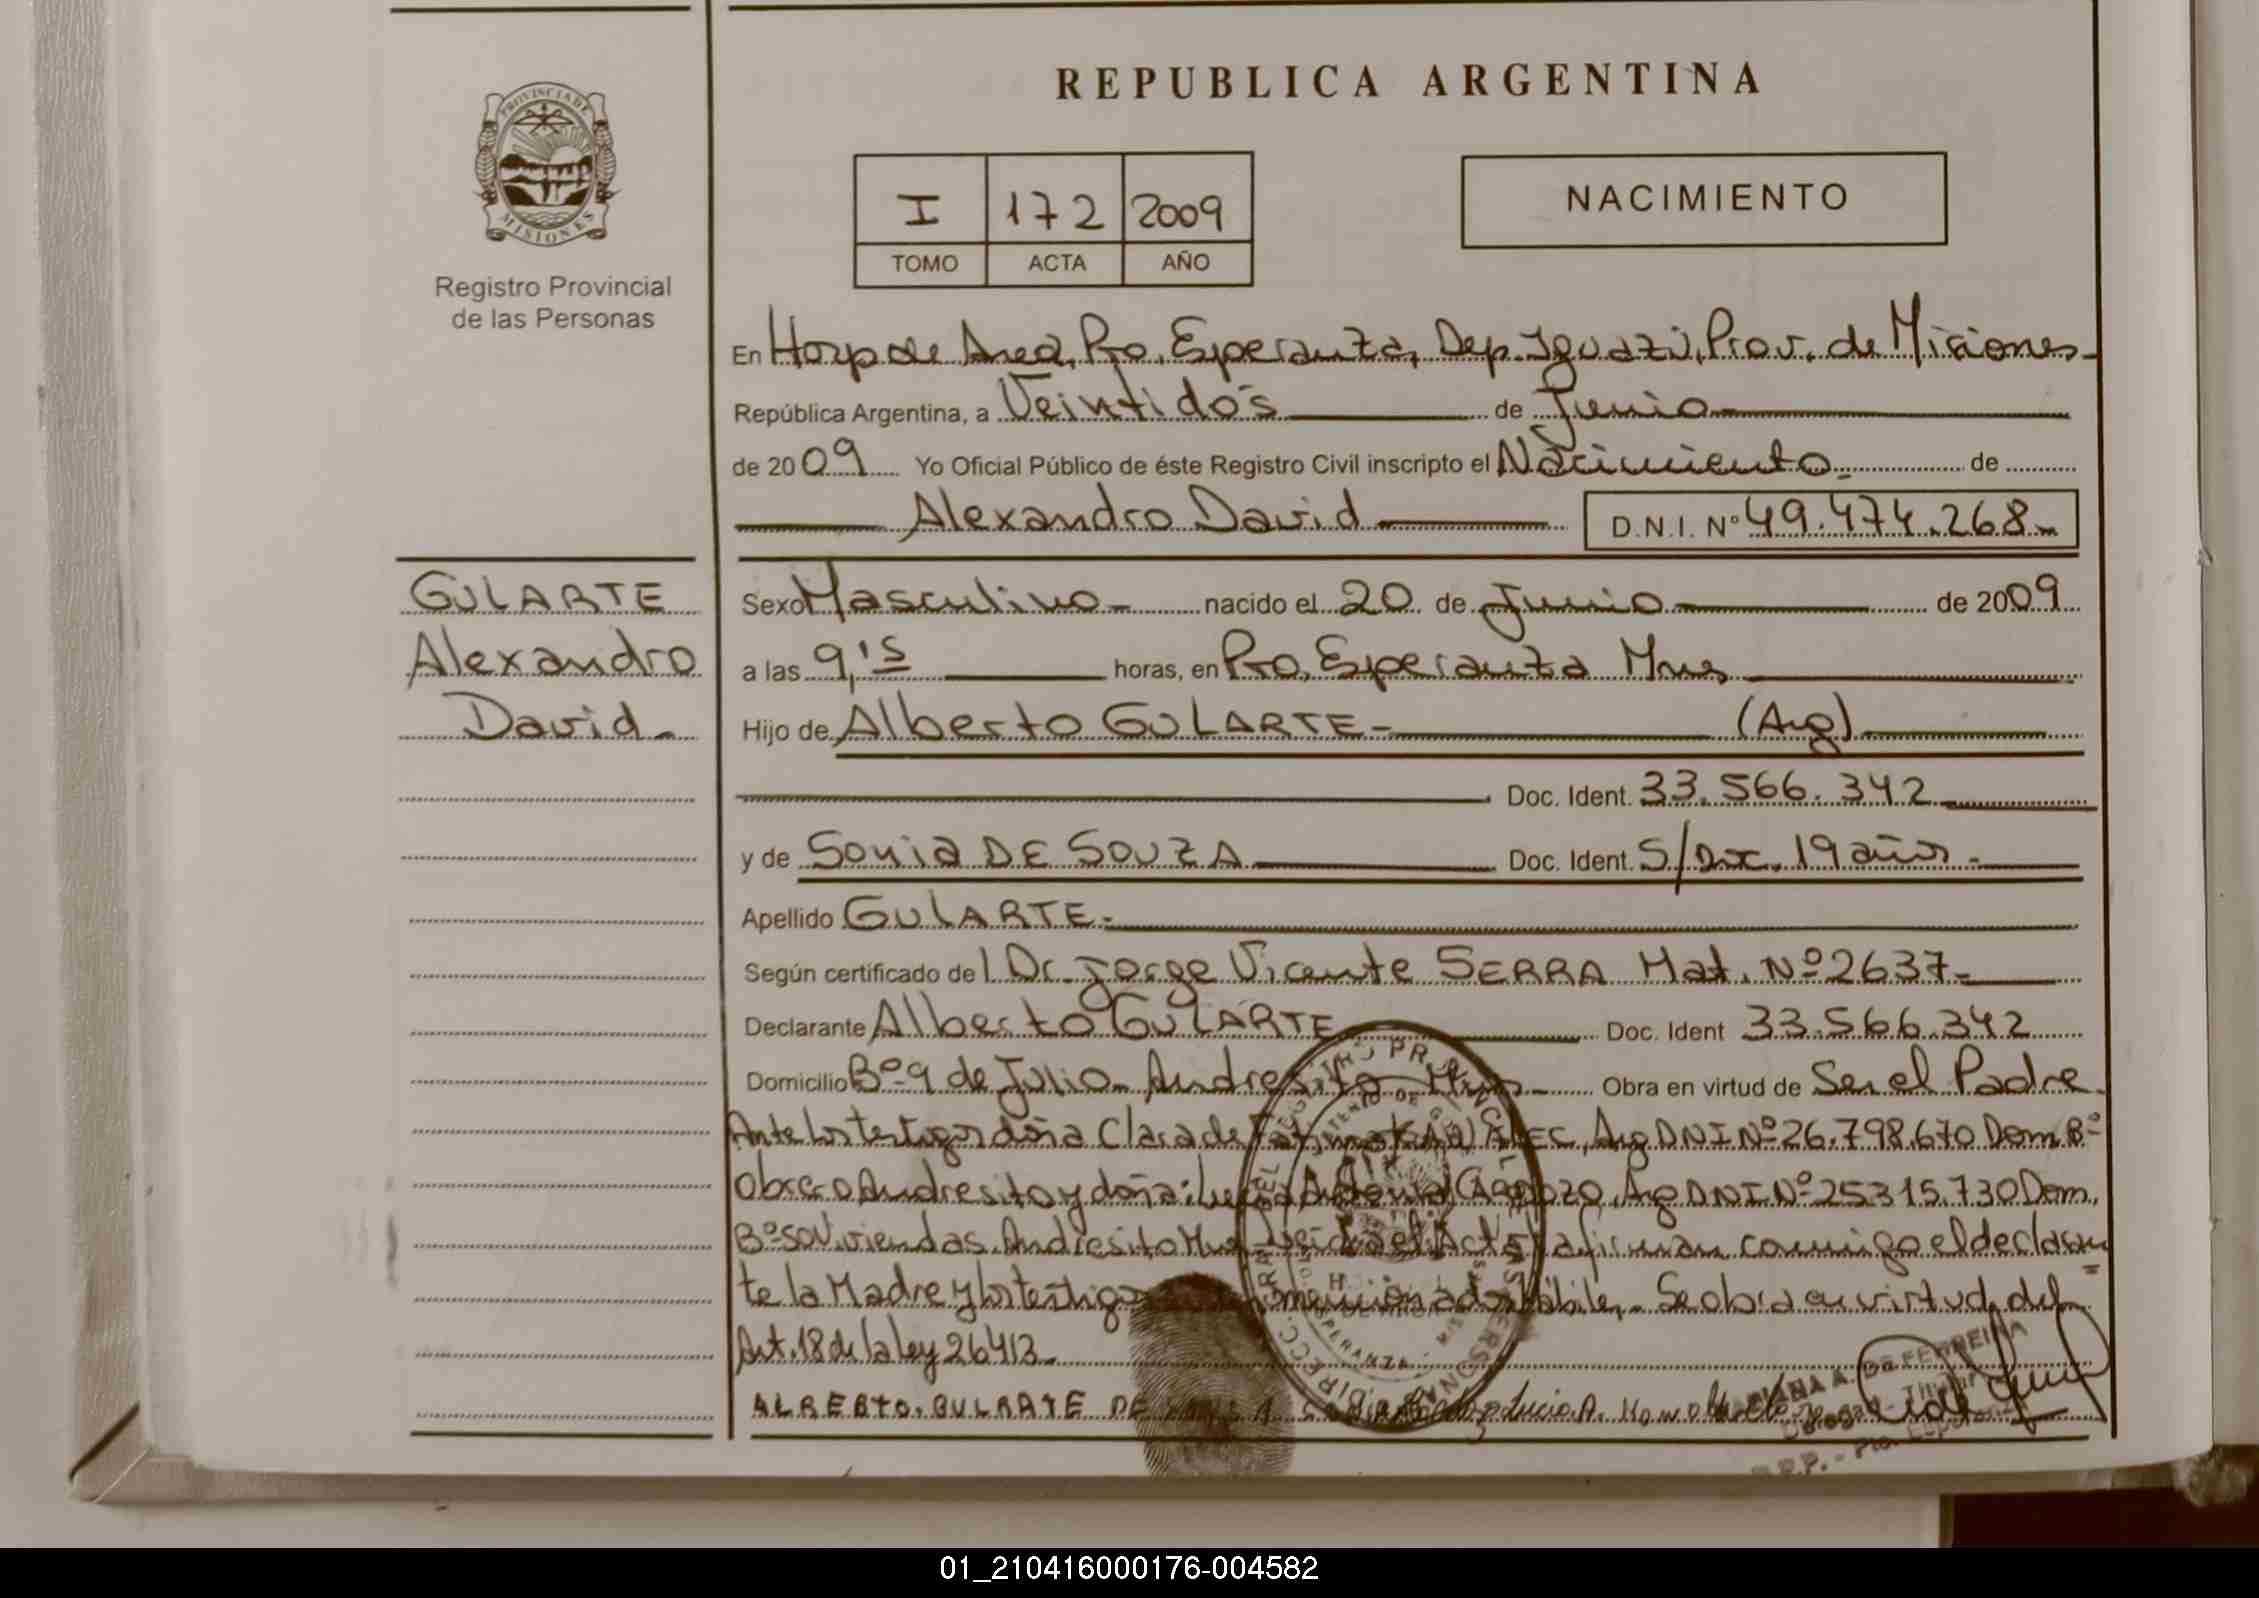 PROVINCIA DE
MISIONES
Registro Provincial
de las Personas
REPUBLICA ARGENTINA
I 172 2009
TOMO ACTA AÑO
NACIMIENTO
En Hosp de Area, Pto, Esperanza, Dep. Iguazú, Prov. de Misiones
República Argentina, a Veintidós de Junio
de 2009 Yo Oficial Público de éste Registro Civil inscripto el Nacimiento de
Alexandro David D.N.I. Nº 49.474.268
GULARTE
Alexandro
David
Sexo Masculino nacido el 20 de Junio de 2009
a las 9,15 horas, en Pto, Esperanza Mnes
Hijo de Alberto GULARTE (Arg)
Doc. Ident. 33.566.342
y de Sonia DE SOUZA Doc. Ident. S/Doc. 19 años
Apellido GULARTE
Según certificado del Dr. Jorge Vicente SERRA Mat. Nº 2637
Declarante Alberto GULARTE Doc. Ident 33.566.342
Domicilio Bº 9 de Julio Andresito Mnes Obra en virtud de Ser el Padre
Ante los testigos doña Clara de Arg DNI Nº 26.798.670 Dom Bº
Obrero Andresito y doña: Arg DNI Nº 25315.730 Dom.
Bº 50 Viviendas Andresito Mnes Leída el Acta firman conmigo el declaran
te la Madre y los testigos mencionados hábiles. Se obra en virtud del
Art. 18 de la ley 26413
ALBERTO. GULARTE DE
01_210416000176-004582